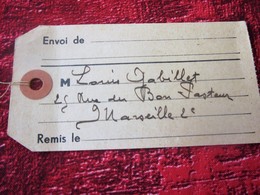 Envoi de
M Louis Gabillet
25 Rue du Bon Pasteur
Marseille 2e
Remis le